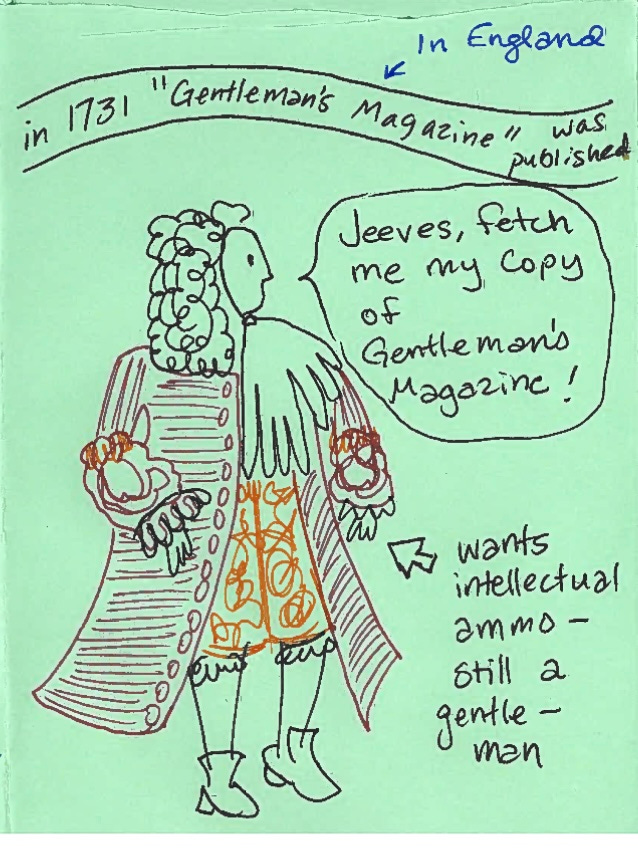 In England
in 1731 "Gentleman's Magazine" was
published
Jeeves, fetch
me my copy
of
Gentleman's
Magazine!
wants
intellectual
ammo -
still a
gentle -
man